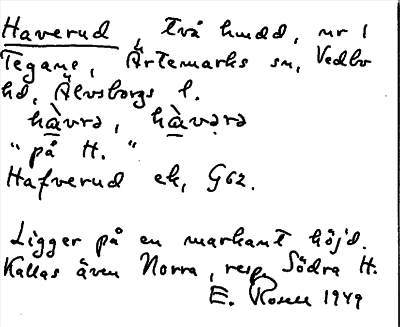 Haverud, två hmdd, nr 1
Tegane, Ärtemarks sn, Vedbo
hd, Älvsborgs l.
hàvrə, hàvərə
"på H."
Hafverud ek, G62.
Ligger på en markant höjd.
Kallas även Norra, resp. Södra H.
E. Rosell 1949